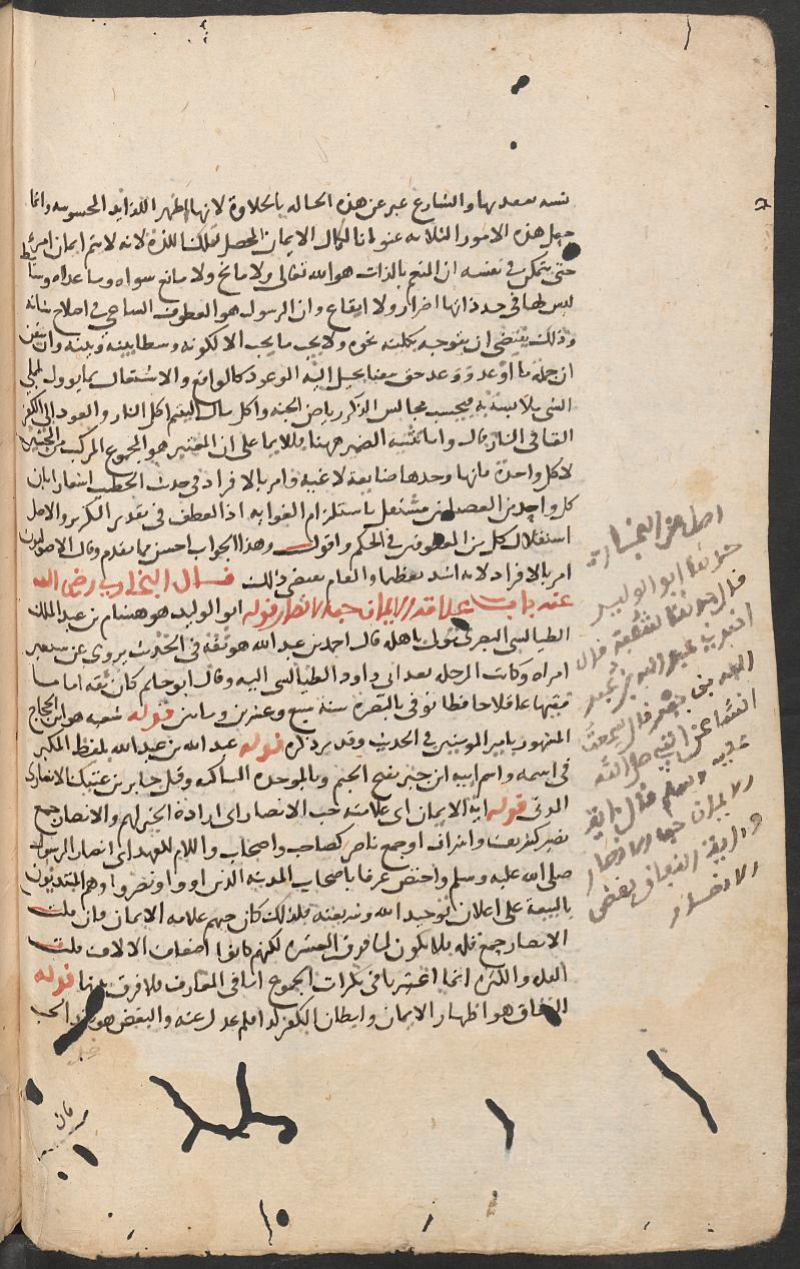 والشارع عبر عن هذه الحاله بالحلاوة لانها اظهر اللذايذ المحسوسه وانما
جعل هذه الامور الثلاثه عنوانا لكمال الايمان المحصل لتلك اللذة لانه لا يتم ايمان امرئ
حتى يتمكن في نفسه ان المنعم بالذات هو الله تعالى ولا مانح ولا مانع سواه وما عداه وسائط
ليس لها في حد ذاتها اضرار ولا انفاع وان الرسول هو العطوف الساعي في اصلاح شانه
وذلك يقتضي ان يتوجه بكليته نحوه ولا يحب ما يحب الا لكونه وسطا بينه وبينه وان يتيقن
ان جملة ما اوعد ووعد حق تيقنا يخيل اليه الموعود كالواقع والاشتمال بما يوول اليه
الشي بملابسته فيحسب مجالس الذكر رياض الجنه واكل مال اليتيم اكل النار والعود الى الكفر
القا في النار قال واما تثنية الضمير ههنا فللايما على ان المعتبر هو المجموع المركب من المحبتين
لا كل واحدة فانها وحدها ضايعة لاغية وامر بالافراد في حديث الخطيب اشعارا بان
كل واحد من العصيانين مستقل باستلزام الغوايه اذ العطف في تقدير التكرير والاصل
استقلال كل من المعطوفين في الحكم واقول وهذا الجواب احسن مما تقدم وقال الاصوليون
امر بالافراد لانه اشد تعظيما والمقام يقتضي ذلك قال البخاري رضي الله
عنه باب علامة الايمان حب الانصار قوله ابو الوليد هو هشام بن عبد الملك
الطيالسي البصري مولى باهله قال احمد بن عبد الله هو ثقة في الحديث يروى عن سبعين
امراه وكانت الرحلة بعد ابي داود الطيالسي اليه وقال ابو حاتم كان ثقه اماما
فقيها عاقلا حافظا توفي بالبصرة سنة سبع وعشرين ومائتين قوله شعبه هو ابن الحجاج
المشهور بامير المومنين في الحديث وقد مر ذكره قوله عبد الله بن عبد الله بلفظ المكبر
في اسمه واسم ابيه ابن جبر بفتح الجيم وبالموحدة الساكنه وقيل جابر بن عتيك الانصاري
المدني قوله اية الايمان اي علامته حب الانصار اي ارادة الخير لهم والانصار جمع
نصير كشريف واشراف او جمع ناصر كصاحب واصحاب واللام للعهد اي انصار الرسول
صلى الله عليه وسلم واختص عرفا باصحاب المدينه الذين اووا ونصروا وهم المبتديون
بالبيعة على اعلان توحيد الله وشريعته فلذلك كان حبهم علامه الايمان فان قلت
الانصار جمع قله فلا يكون لما فوق العشره لكنهم كانوا اضعاف الالاف قلت
القلة والكثرة انما اعتبرتا في نكرات الجموع اما في المعارف فلا فرق بينهما قوله
النفاق هو اظهار الايمان وابطان الكفر والبغض هو ضد الحب
فان
اصل من البخاري
حدثنا ابو الوليد
قال حدثنا شعبة قال
اخبرني عبد الله بن عبد
الله بن جبر قال سمعت
انسا عن النبي صلى الله
عليه وسلم قال اية
الايمان حب الانصار
واية النفاق بغض
الانصار